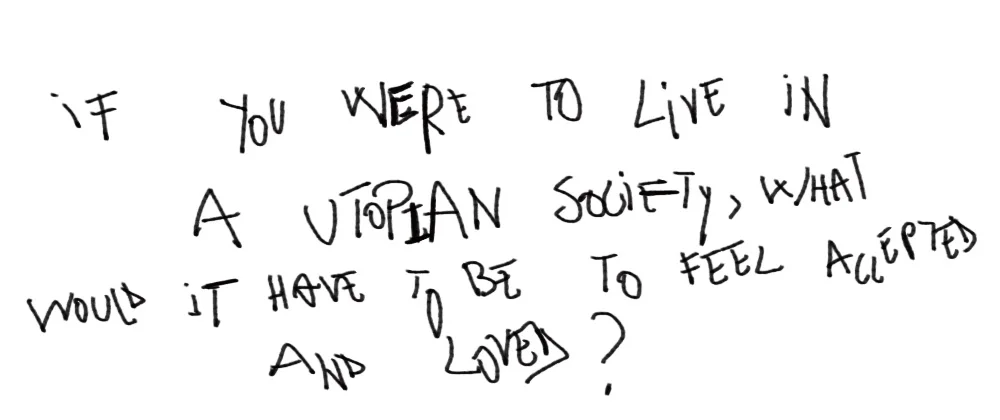 iF YOU WERE TO LiVE iN
A UTOPIAN SOCiETY, WHAT
WOULD iT HAVE TO BE TO FEEL ACCEPTED
AND LOVED?